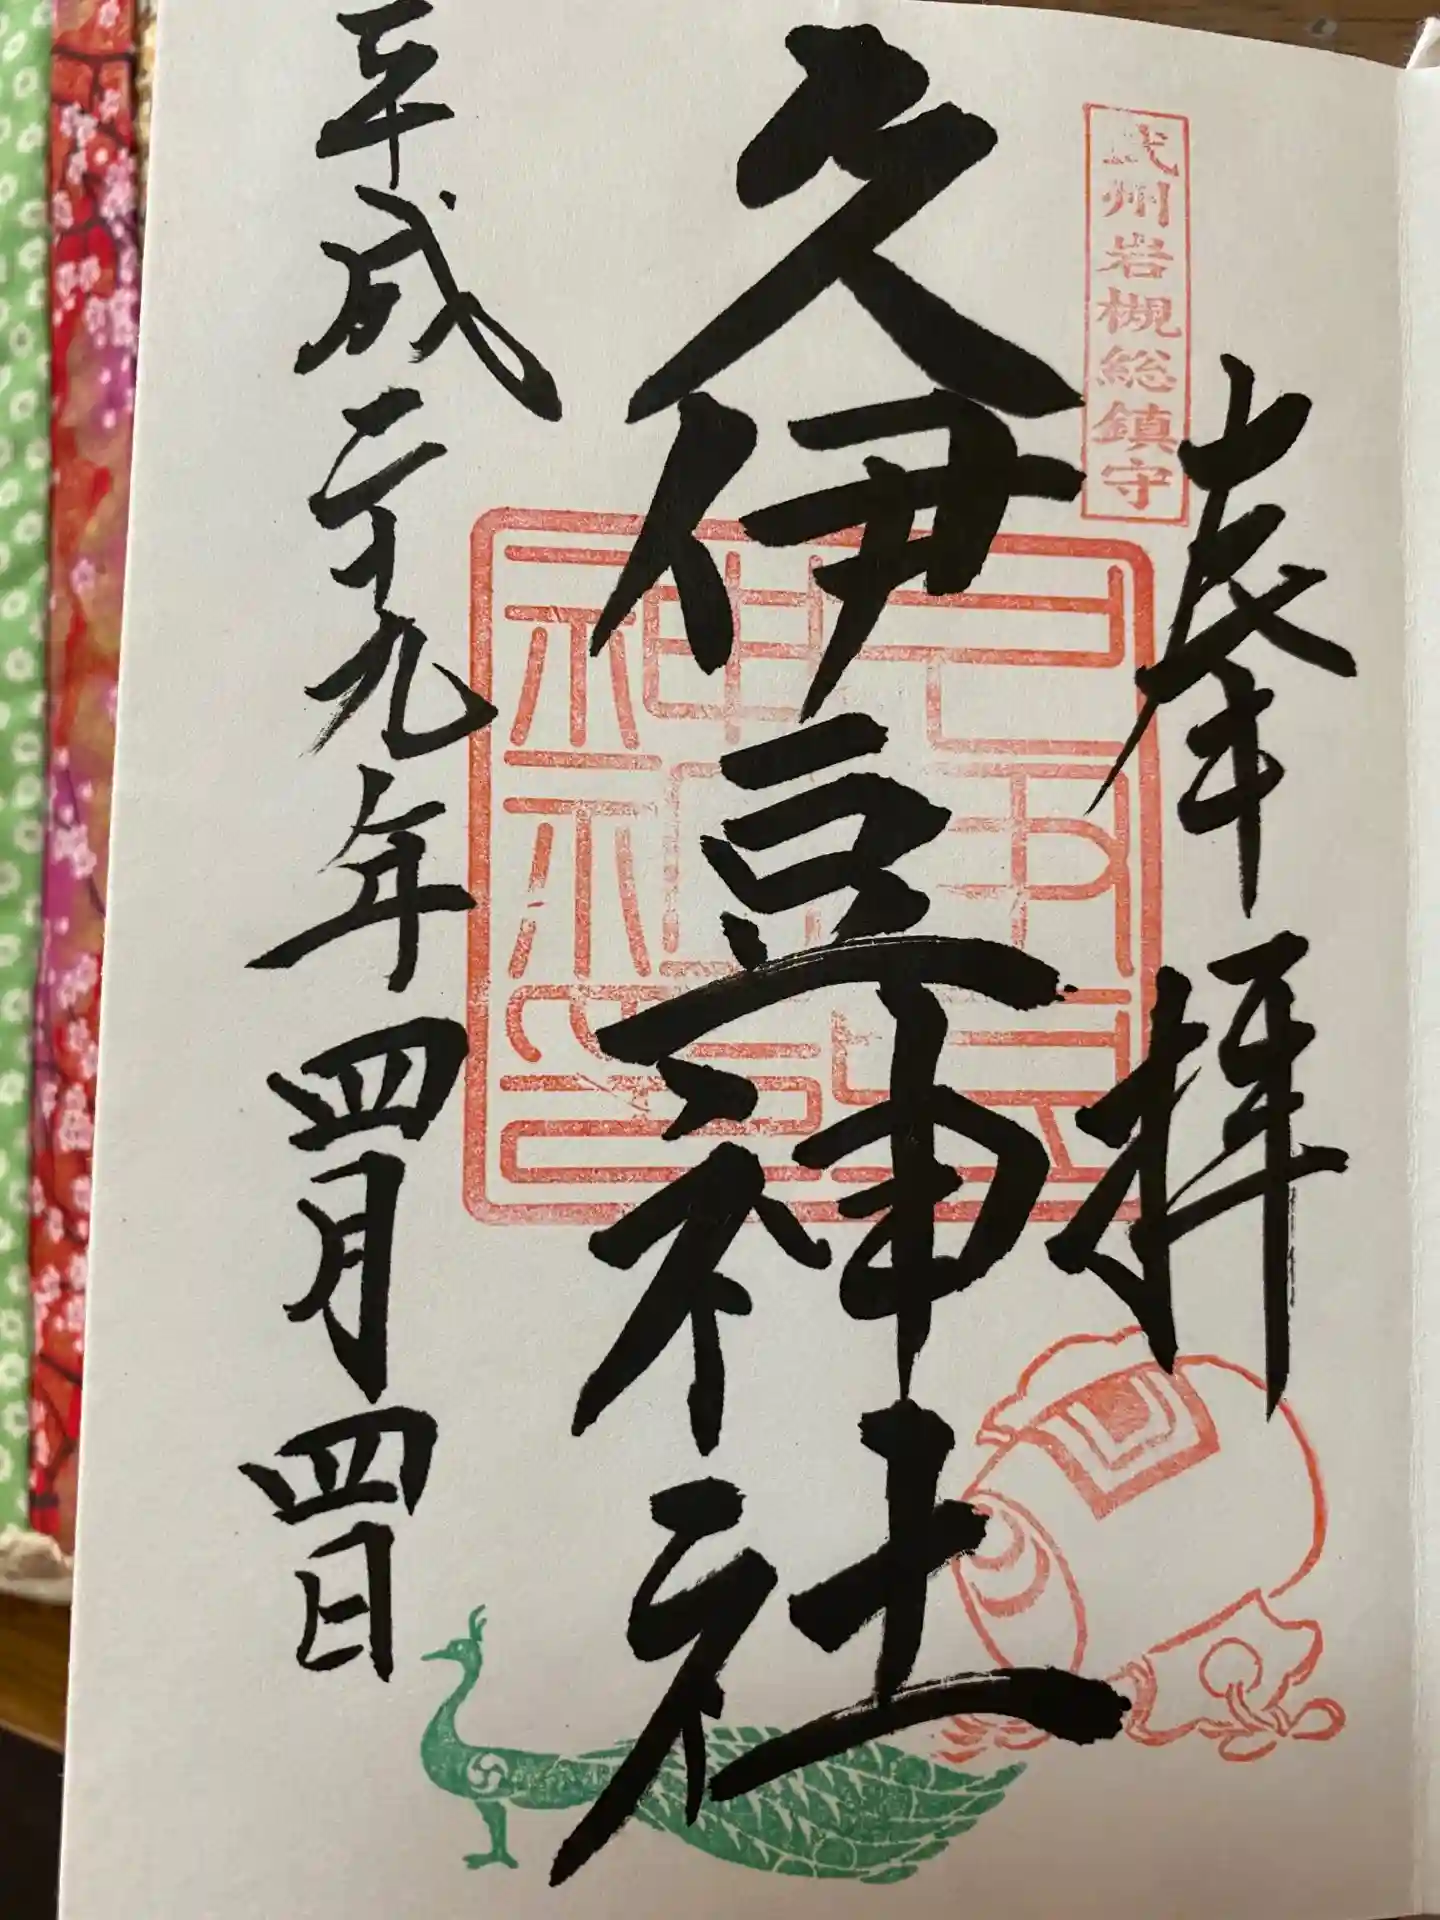 武州岩槻総鎮守
奉拝
久伊豆神社
久伊豆神社之印
平成二十九年四月四日